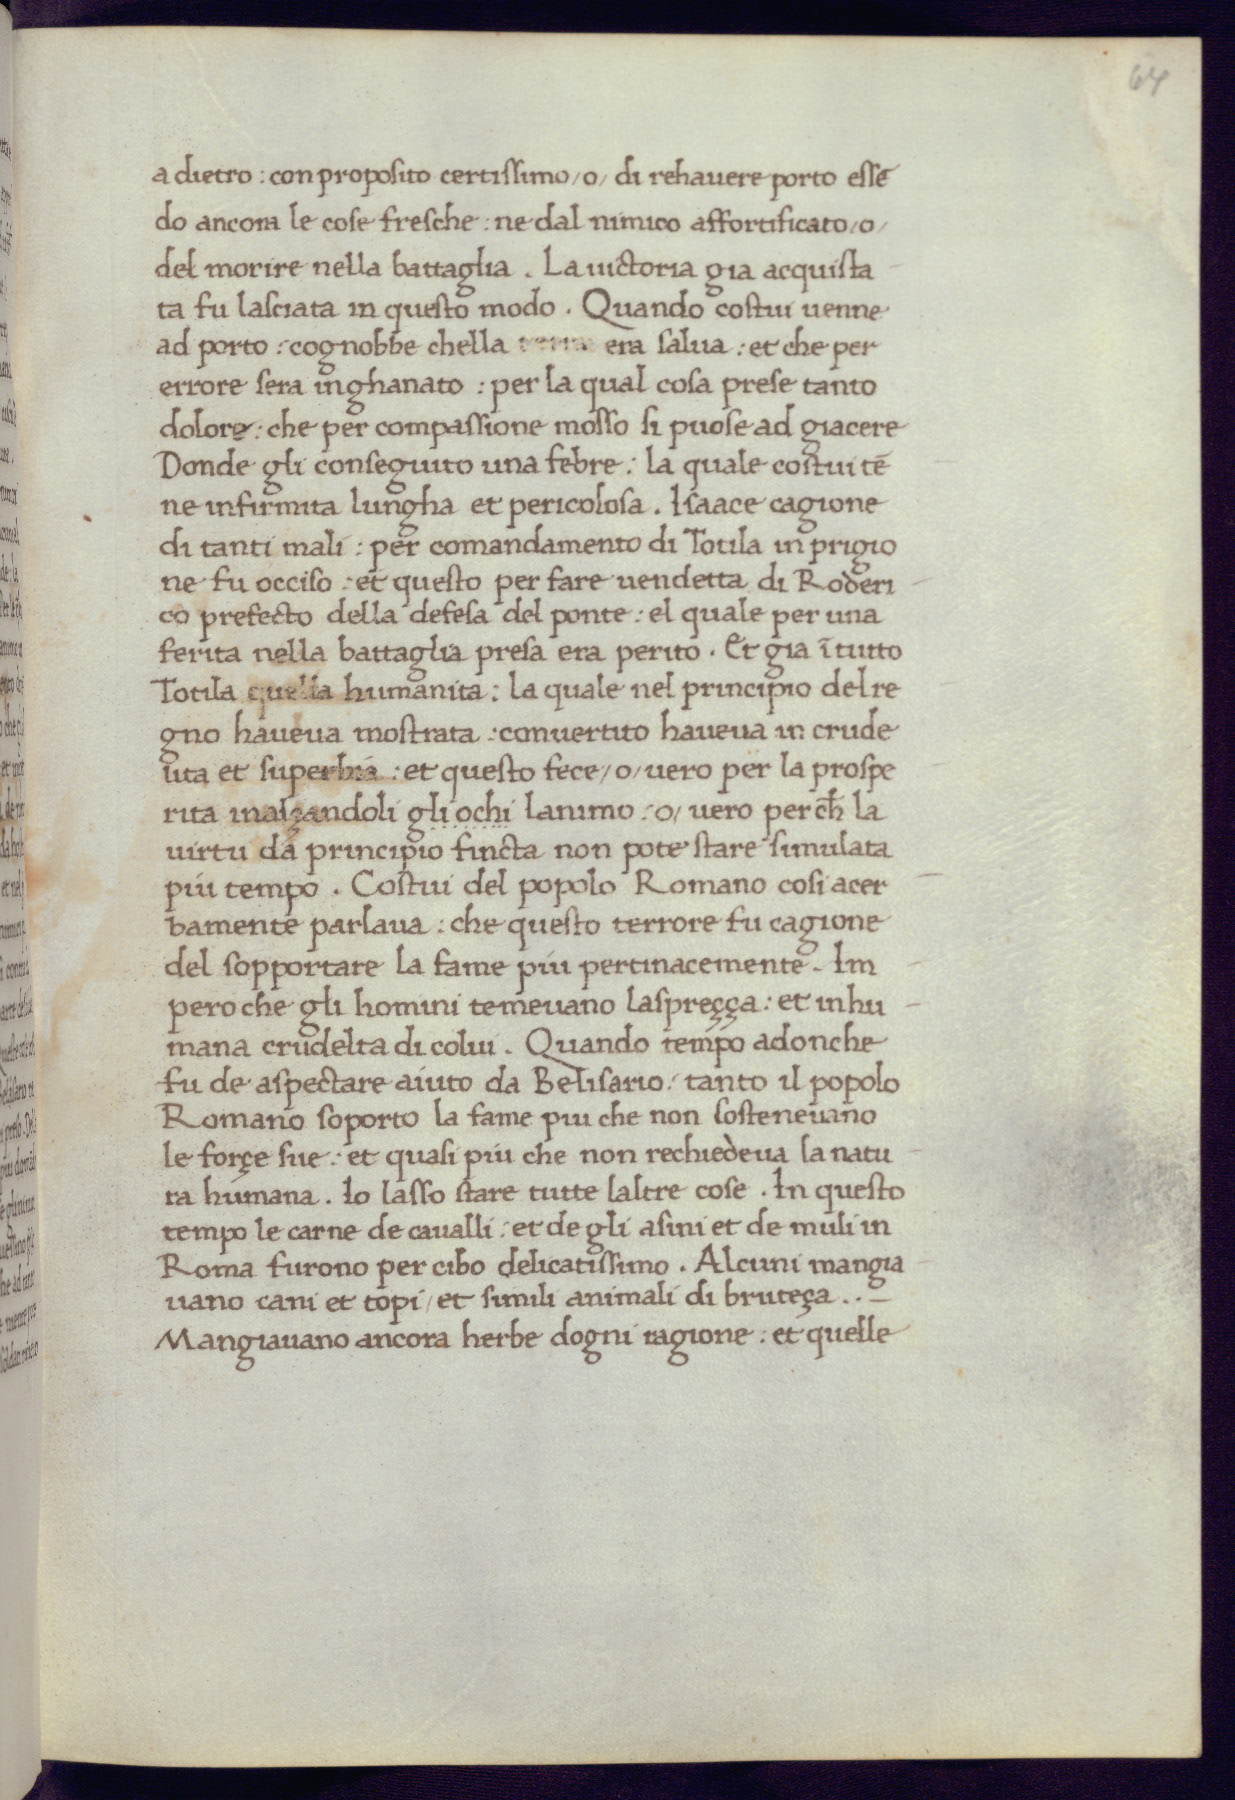 64
a dietro : con proposito certissimo / o / di rehauere porto essē
do ancora le cose fresche : ne dal nimico affortificato / o /
del morire nella battaglia . La uictoria gia acquista
ta fu lasciata in questo modo . Quando costui uenne
ad porto : cognobbe chella terra era salua : et che per
errore sera inghanato : per la qual cosa prese tanto
dolore : che per compassione mosso si puose ad giacere
Donde gli conseguito una febre : la quale costui tē
ne infirmita lungha et pericolosa . Isaace cagione
di tanti mali : per comandamento di Totila in prigio
ne fu occiso : et questo per fare uendetta di Roderi
co prefecto della defesa del ponte : el quale per una
ferita nella battaglia presa era perito . Et gia ī tutto
Totila quella humanita : la quale nel principio del re
gno haueua mostrata : conuertito haueua in crude
lita et superbia : et questo fece / o / uero per la prospe
rita inalçandoli gli ochi lanimo : o / uero per ch̄ la
uirtu da principio fincta non pote stare simulata
piu tempo . Costui del popolo Romano cosi acer
bamente parlaua : che questo terrore fu cagione
del sopportare la fame piu pertinacemente . Im
pero che gli homini temeuano laspreçça : et inhu
mana crudelta di colui . Quando tempo adonche
fu de aspectare aiuto da Belisario : tanto il popolo
Romano soporto la fame piu che non sosteneuano
le forçe sue : et quasi piu che non rechiedeua la natu
ra humana . Io lasso stare tutte laltre cose . In questo
tempo le carne de caualli : et de gli asini et de muli in
Roma furono per cibo delicatissimo . Alcuni mangia
uano cani et topi / et simili animali di bruteça . . —
Mangiauano ancora herbe dogni ragione : et quelle